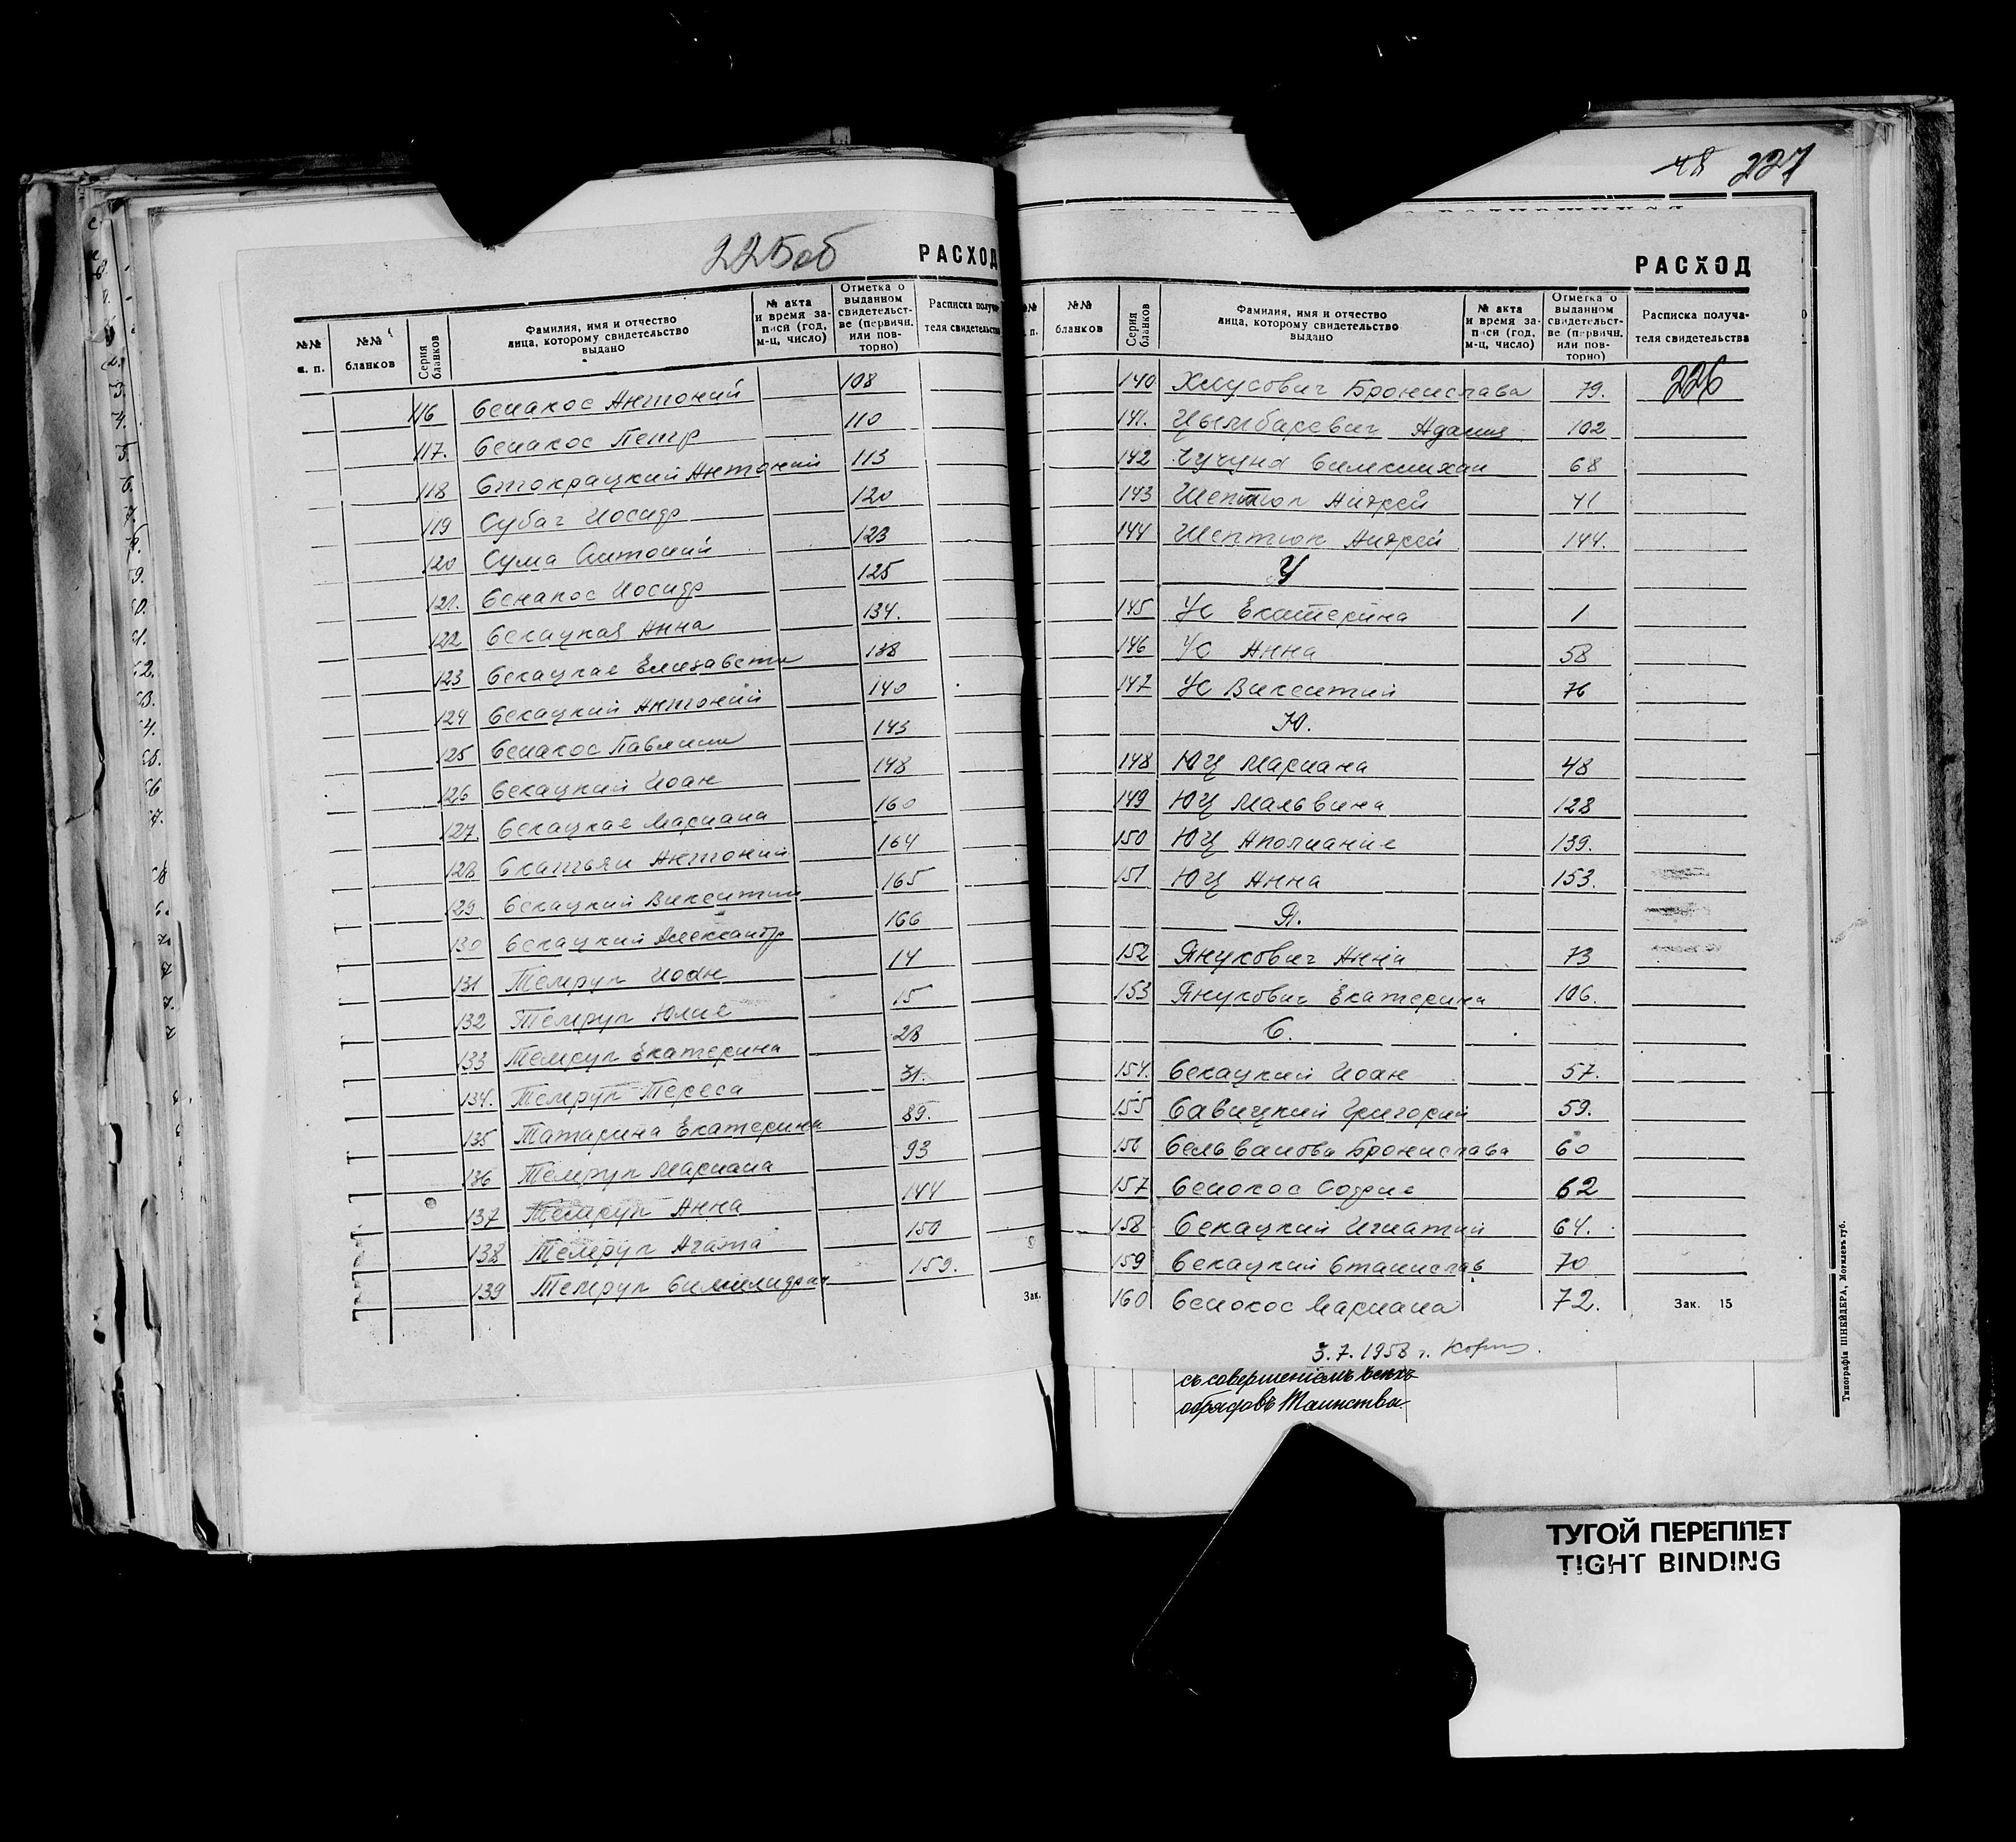 225об
РАСХОД
№№ п. п.
№№ бланков
Серия бланков
Фамилия, имя и отчество лица, которому свидетельство выдано
№ акта и время записи (год, м-ц, число)
Отметка о выданном свидетельстве (первичн. или повторно)
Расписка получателя свидетельства
116 Сенакос Антоний 108
117. Сенакос Петр 110
118 Стокрацкий Антоний 113
119 Субач Иосиф 120
120 Сума Антоний 123
121. Сенакос Иосиф 125
122 Секацкая Анна 134.
123 Секацкая Елизавета 138
124 Секацкий Антоний 140
125 Сенакос Павлин 143
126 Секацкий Иоан 148
127. Секацкая Мариана 160
128 Антоний 164
129 Секацкий Викентий 165
130 Секацкий Александр 166
131 Темрук Иоан 14
132 Темрук Юлия 15
133 Темрук Екатерина 28
134. Темрук Тереса 31.
135 Татарина Екатерина 89.
136 Темрук Мариана 93
137 Темрук Анна 144
138 Темрук Агата 150
139 Темрук 159.
Зак.
48 227
РАСХОД
№№ п.
№№ бланков
Серия бланков
Фамилия, имя и отчество лица, которому свидетельство выдано
№ акта и время записи (год, м-ц, число)
Отметка о выданном свидетельстве (первичн. или повторно)
Расписка получателя свидетельства
140 Хмусович Бронислава 79. 226
141. Цымбаревич Адам 102
142 Чучуна 68
143 Шептюк Андрей 41
144 Шептюк Андрей 144.
У
145 Ус Екатерина 1
146 Ус Анна 58
147 Ус Викентий 76
Ю.
148 Юц Мариана 48
149 Юц Мальвина 128
150 Юц Аполиания 139.
151 Юц Анна 153.
Я.
152 Янукович Анна 73
153 Янукович Екатерина 106.
С.
154. Секацкий Иоан 57.
155 Савицкий Григорий 59.
156 Сельванова Бронислава 60
157 Сенокос София 62
158 Секацкий Игнатий 64.
159 Секацкий Станислав 70
160 Сенокос Мариана 72.
Зак. 15
3.7.1958 г.
съ совершеніемъ всехъ
обрядовъ Таинства.
Типографія ШНЕЙДЕРА, Могилевъ губ.
ТУГОЙ ПЕРЕПЛЕТ
TIGHT BINDING